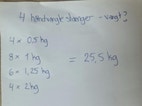 4 håndvægt-stænger - vægt?
4 × 0,5 kg
8 × 1 kg
6 × 1,25 kg
4 × 2 kg
= 25,5 kg